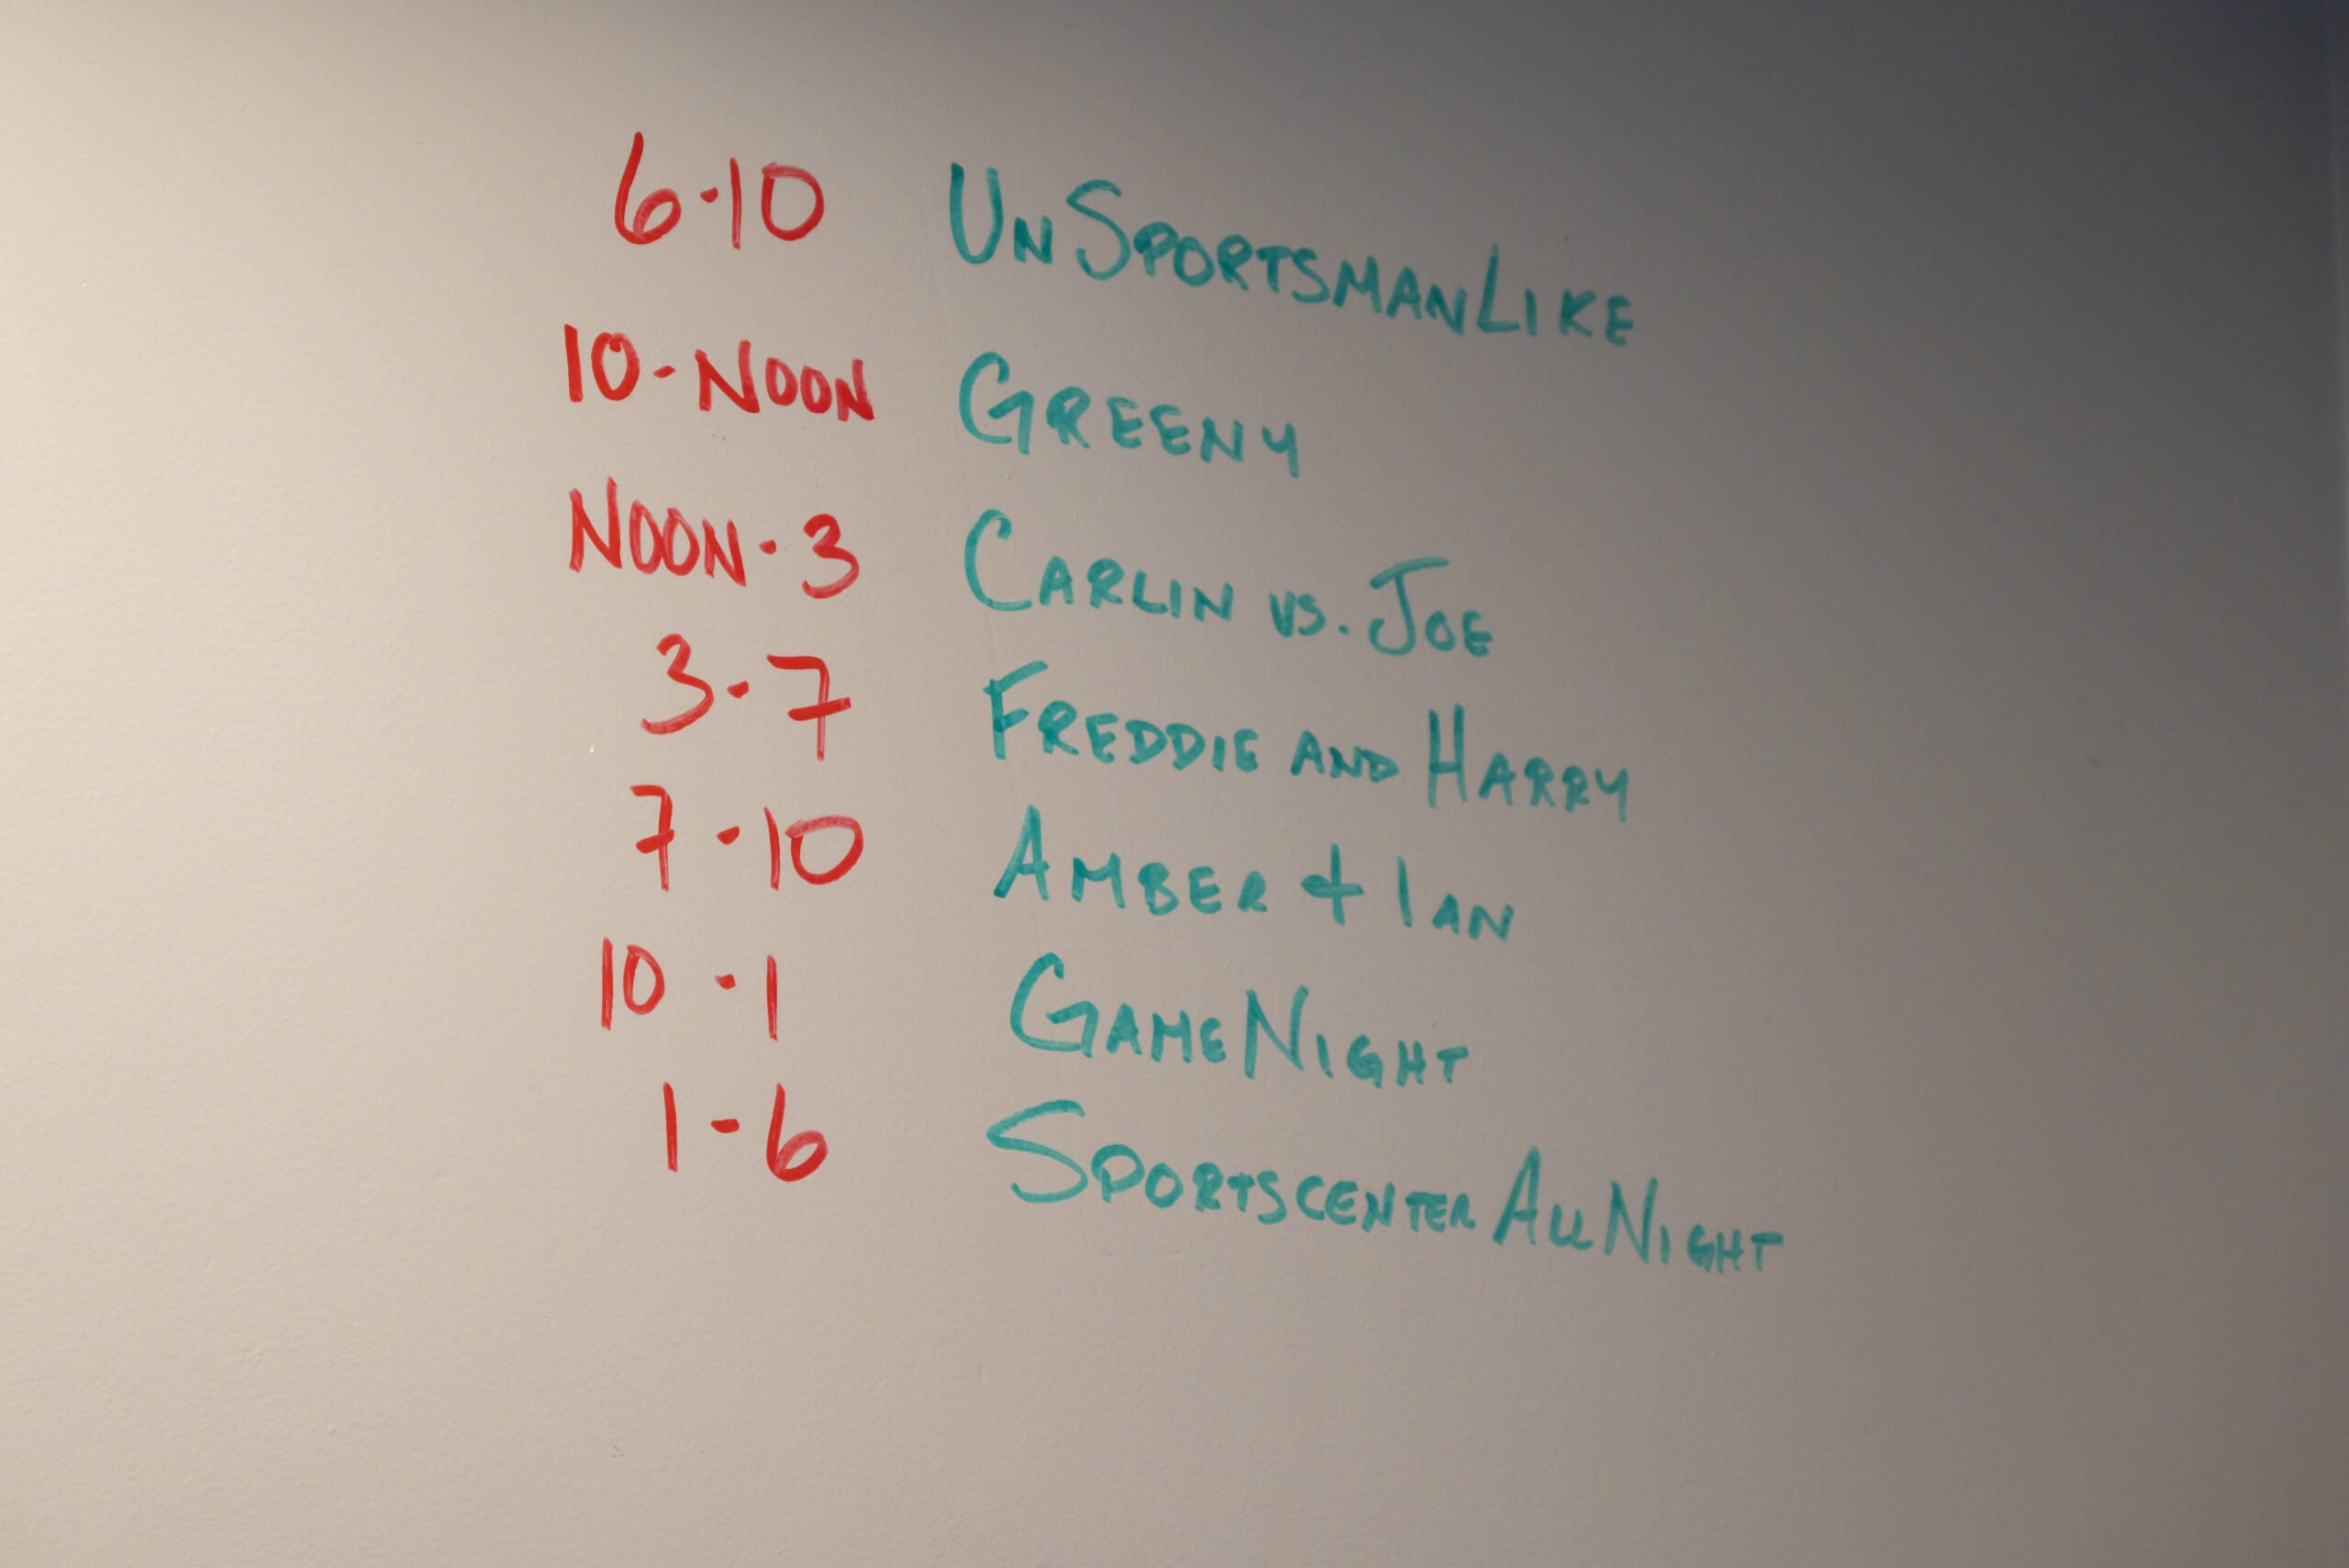 6-10 UNSPORTSMANLIKE
10-NOON GREENY
NOON-3 CARLIN VS. JOE
3-7 FREDDIE AND HARRY
7-10 AMBER & IAN
10-1 GAMENIGHT
1-6 SPORTSCENTER ALL NIGHT